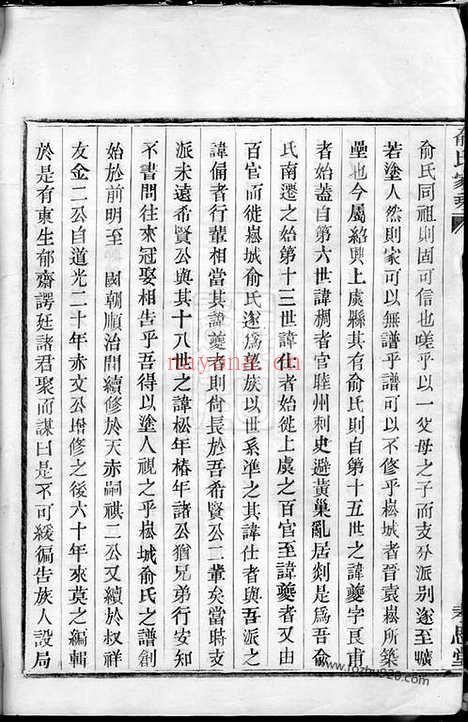 俞氏家乘
俞氏同祖則固可信也嗟乎以一父母之子而支分派別遂至曠
若塗人然則家可以無譜乎譜可以不修乎崧城者晉袁崧所築
壘也今屬紹興上虞縣其有俞氏則自第十五世之諱夔字良甫
者始蓋自第六世諱稠者官睦州刺史避黃巢亂居剡是爲吾俞
氏南遷之始第十三世諱仕者始徙上虞之百官至諱夔者又由
百官而徙崧城俞氏遂爲望族以世系準之其諱仕者與吾派之
諱偁者行輩相當其諱夔者則尙長於吾希賢公二輩矣當時支
派未遠希賢公與其十八世之諱松年椿年諸公猶兄弟行安知
不書問往來冠娶相告乎吾得以塗人視之乎崧城俞氏之譜創
始於前明至 國朝順治間續修於天赤嗣祺二公又續於叔祥
友金二公自道光二十年赤文公增修之後六十年來莫之編輯
於是有東生郁齋諤廷諸君聚而謀曰是不可緩徧告族人設局
nayong.cn
www.fozhu920.com